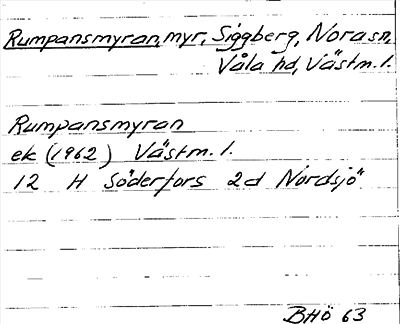 Rumpansmyran, myr, Siggberg, Nora sn,
Våla hd, Västm. l.
Rumpansmyran
ek (1962) Västm. l.
12 H Söderfors 2d Nordsjö
BHÖ 63